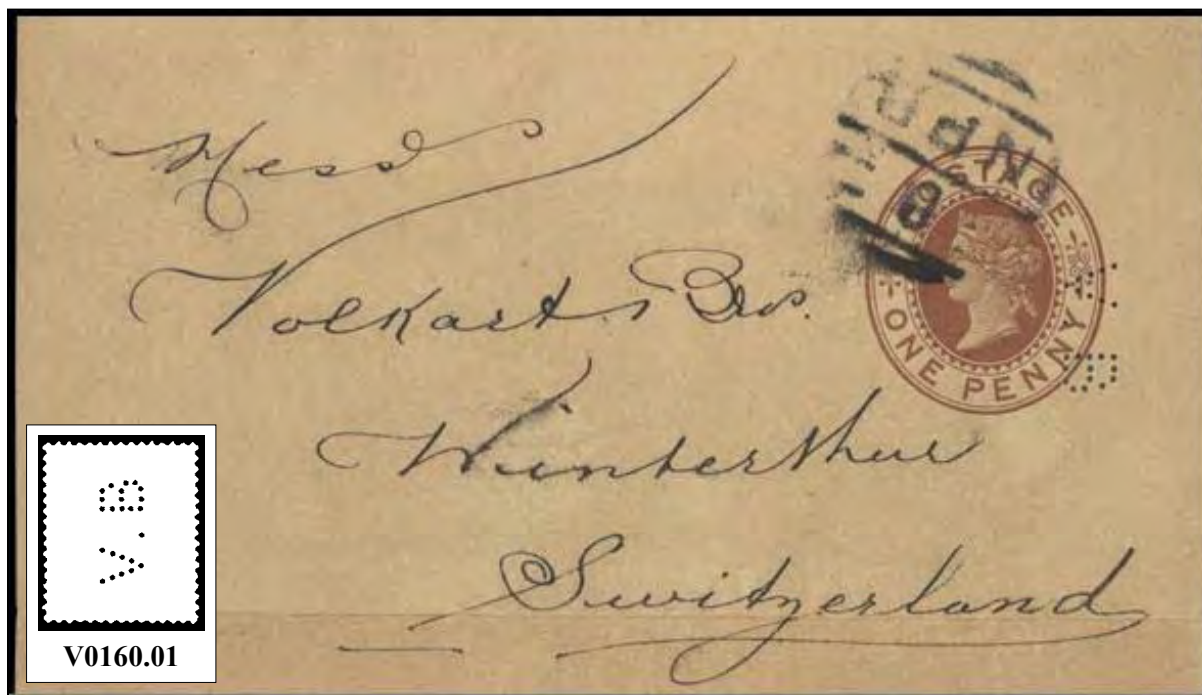 Mess
Volkart Bros.
Winterthur
Switzerland
POSTAGE
ONE PENNY
V.B
V0160.01